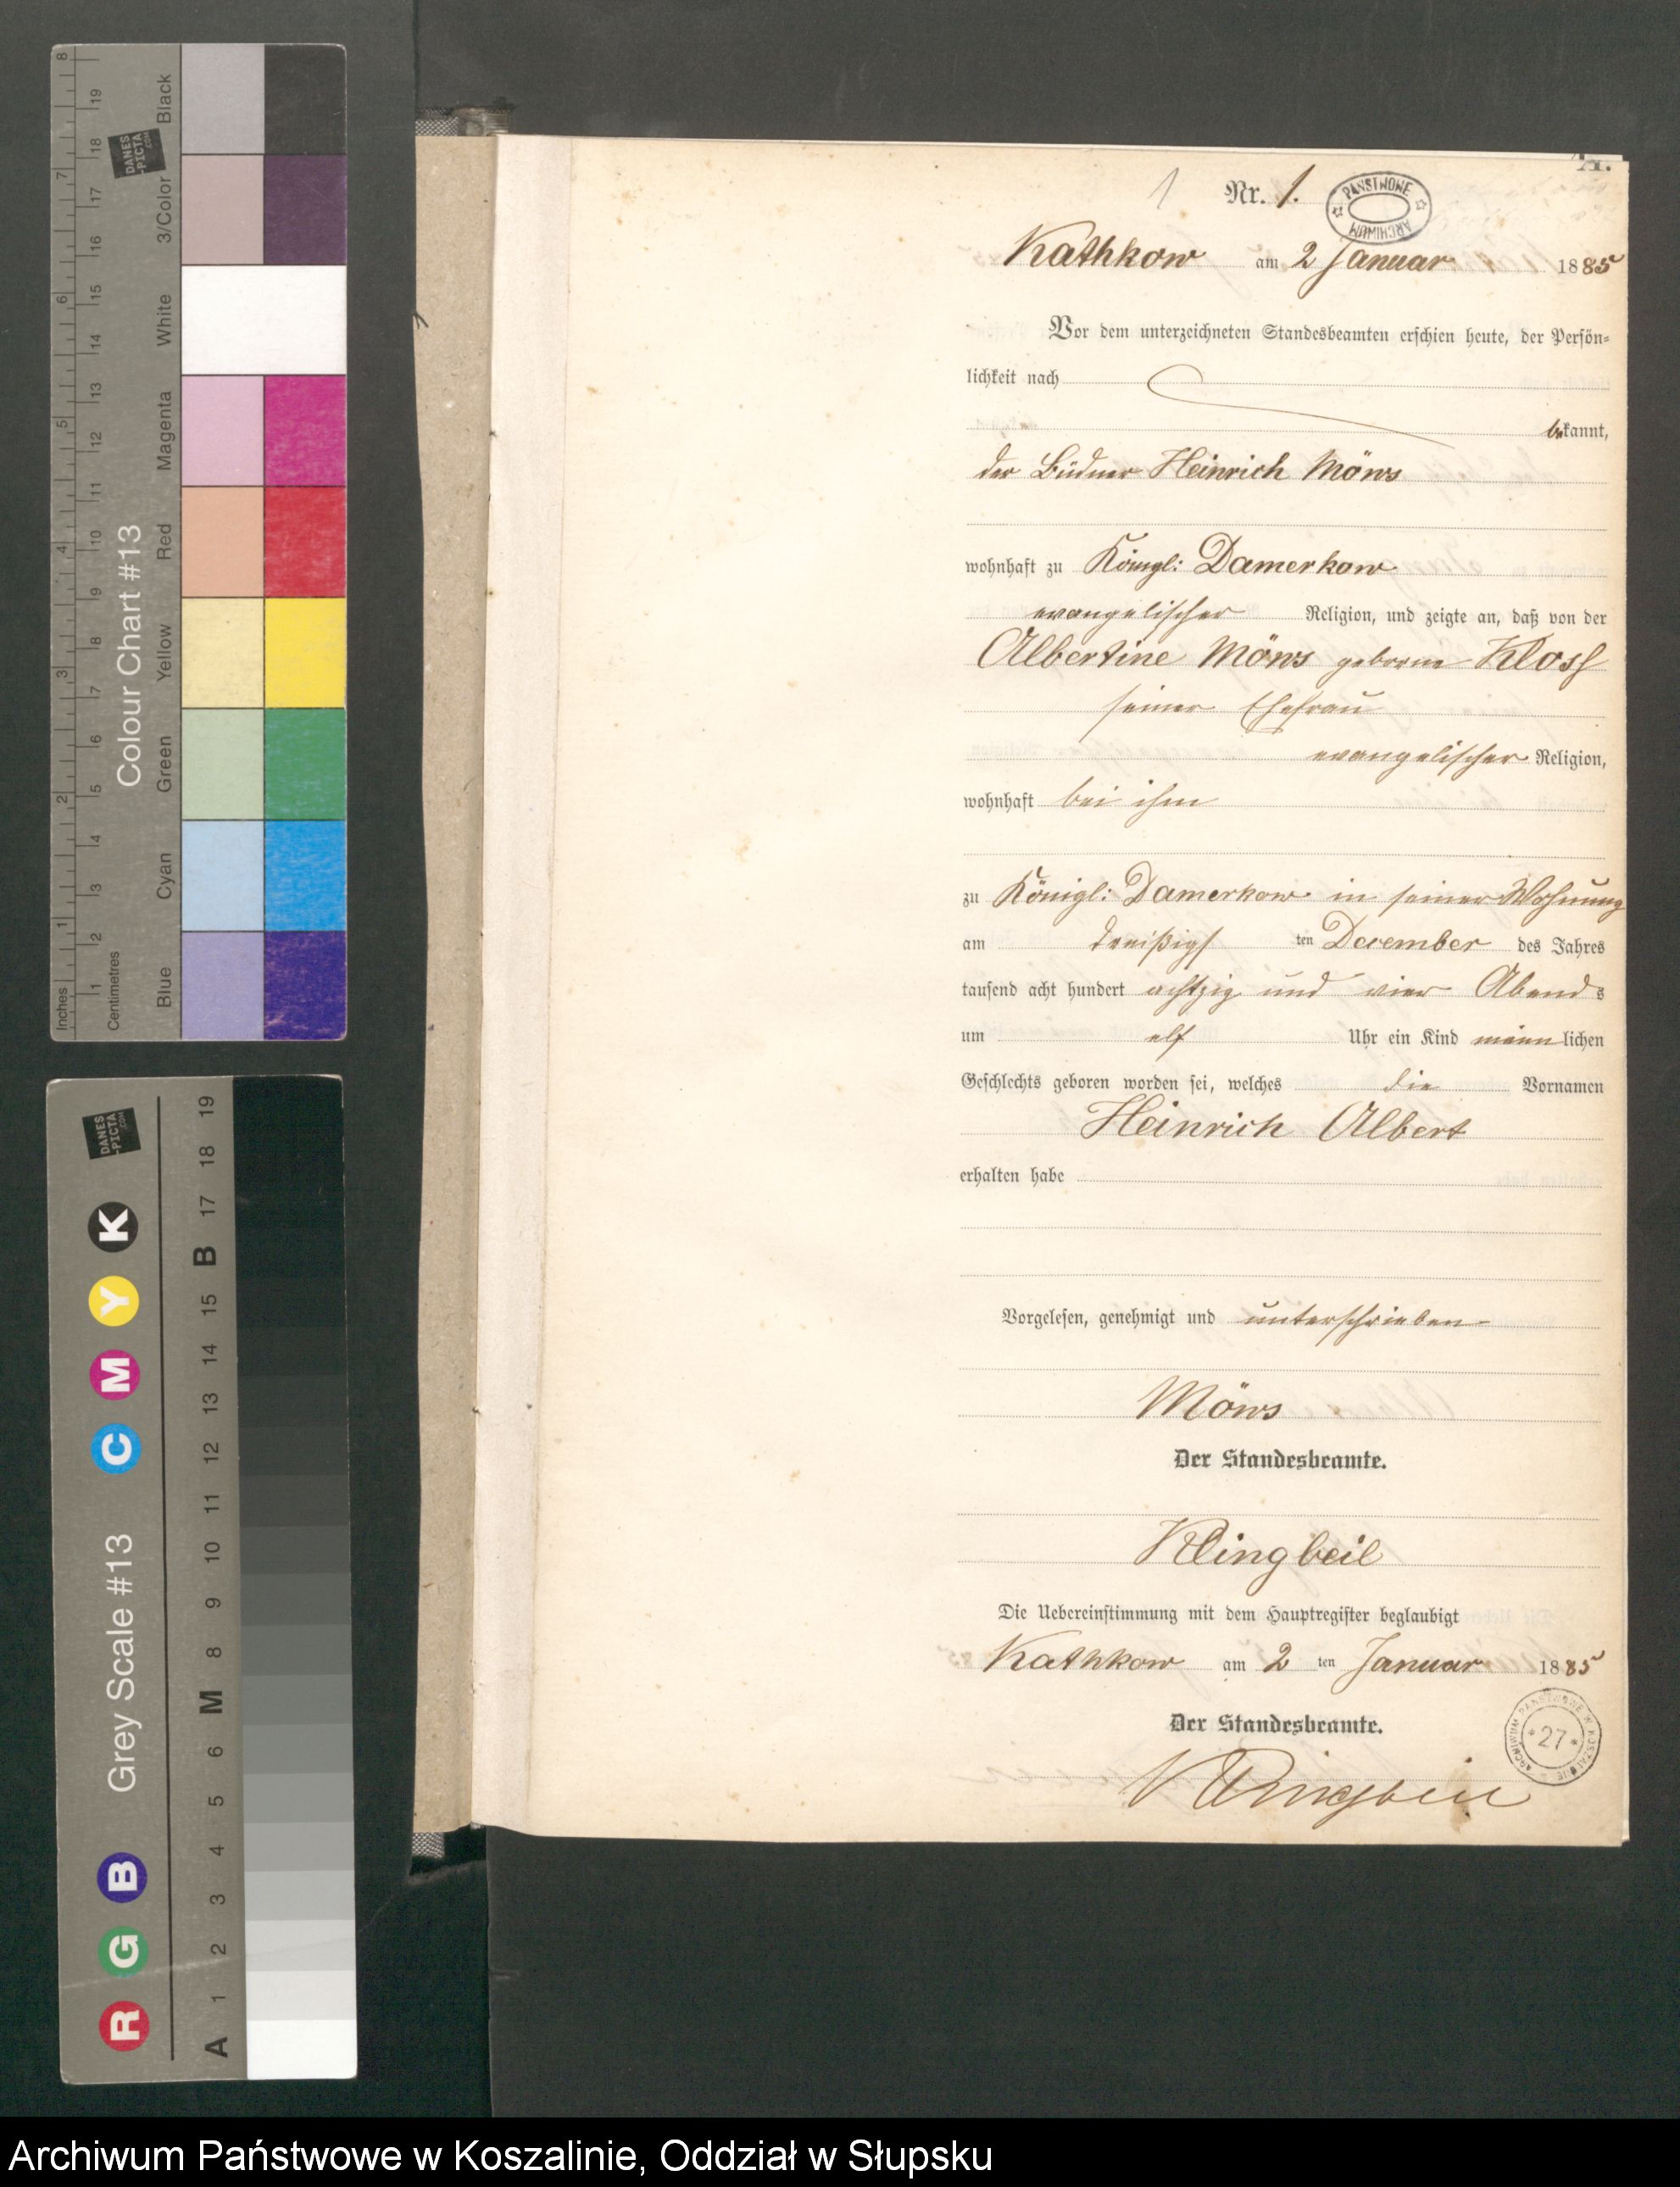 A.
1
Nr. 1.
PAŃSTWOWE ARCHIWUM
Kathkow am 2 Januar 1885
Vor dem unterzeichneten Standesbeamten erschien heute, der Persön-
lichkeit nach
bekannt,
der Büdner Heinrich Möws
wohnhaft zu Königl: Damerkow
evangelischer Religion, und zeigte an, daß von der
Albertine Möws geborne Kloss
seiner Ehefrau
evangelischer Religion,
wohnhaft bei ihm
zu Königl: Damerkow in seiner Wohnung
am dreißigs ten December des Jahres
tausend acht hundert achtzig und vier Abends
um elf Uhr ein Kind männlichen
Geschlechts geboren worden sei, welches die Vornamen
Heinrich Albert
erhalten habe
Vorgelesen, genehmigt und unterschrieben
Möws
Der Standesbeamte.
Klingbeil
Die Uebereinstimmung mit dem Hauptregister beglaubigt
Kathkow am 2 ten Januar 1885
Der Standesbeamte.
Klingbeil
ARCHIWUM PAŃSTWOWE W KOSZALINIE
* 27 *
Colour Chart #13
Inches 1 2 3 4 5 6 7 8
Centimetres 1 2 3 4 5 6 7 8 9 10 11 12 13 14 15 16 17 18 19
Blue Cyan Green Yellow Red Magenta White 3/Color Black
DANES
-PICTA
.COM
Grey Scale #13
R G B C M Y K
A 1 2 3 4 5 6 M 8 9 10 11 12 13 14 15 B 17 18 19
DANES
-PICTA
.COM
Archiwum Państwowe w Koszalinie, Oddział w Słupsku